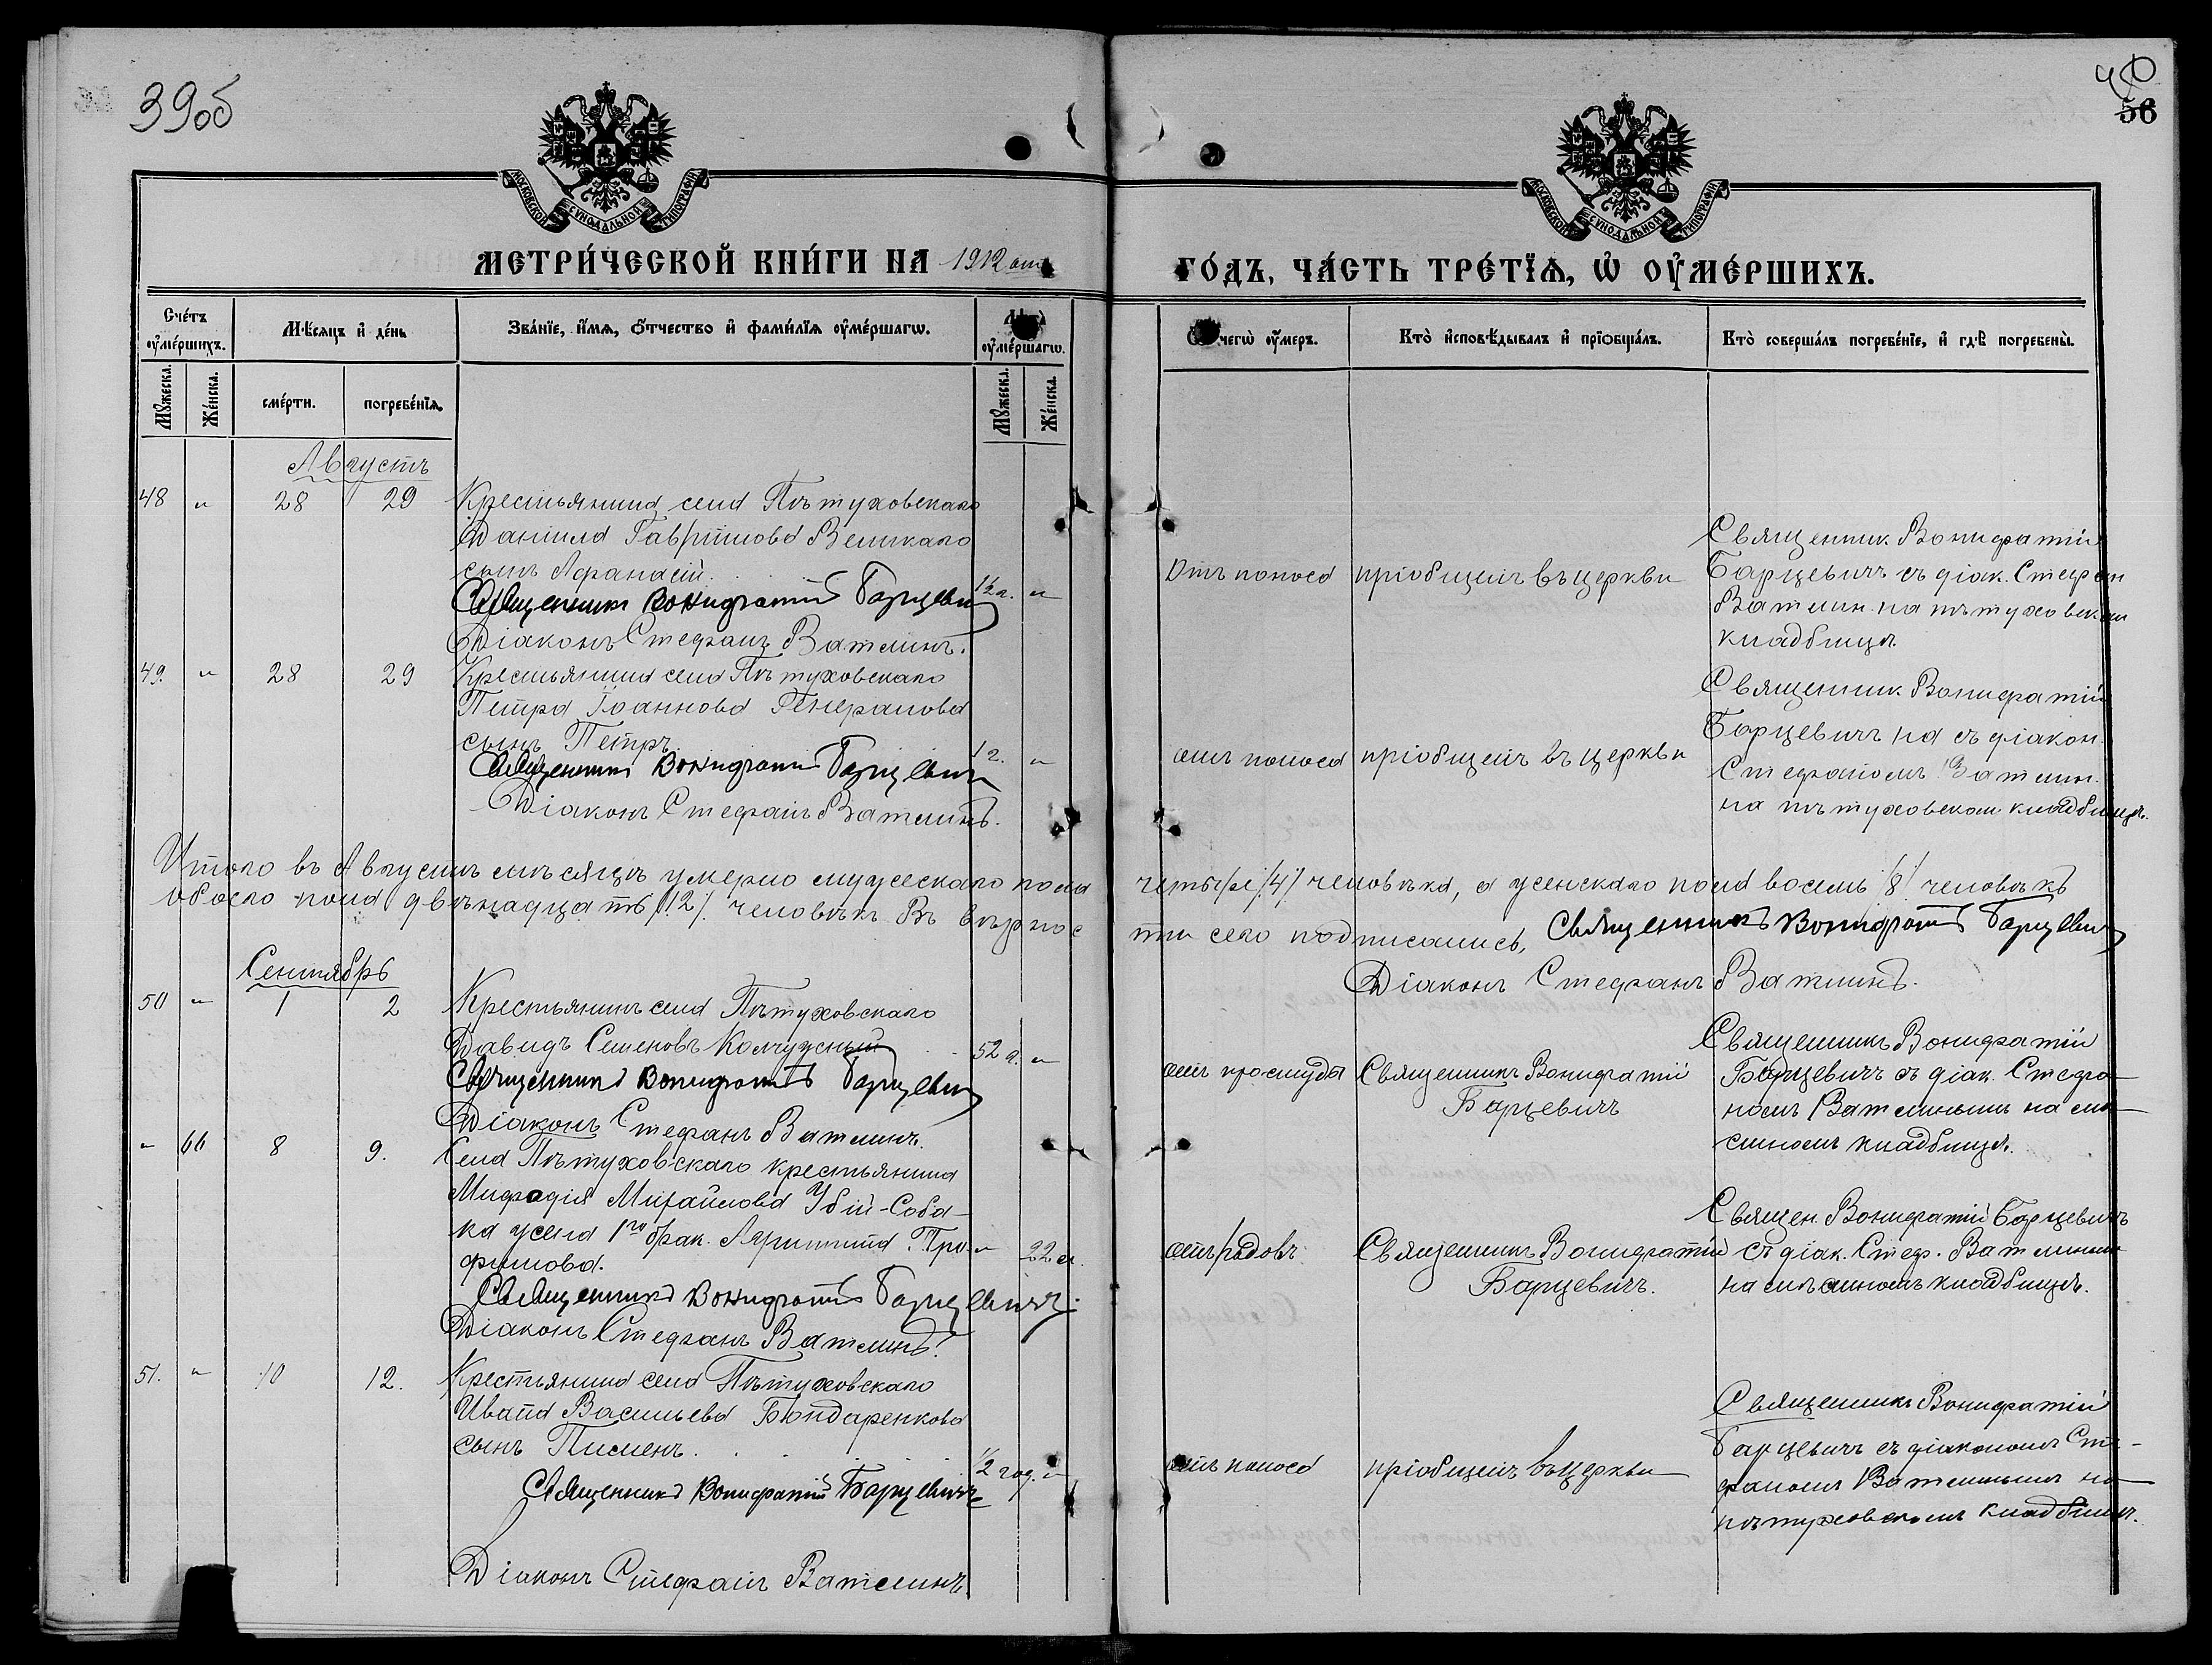 39об
40
56
МОСКОВСКОЙ СѴНОДАЛЬНОЙ ТИПОГРАФІИ
МОСКОВСКОЙ СѴНОДАЛЬНОЙ ТИПОГРАФІИ
МЕТРИ́ЧЕСКОЙ КНИ́ГИ НА 1912
ГО́ДЪ, ЧА́СТЬ ТРЕ́ТЇѦ, Ѽ ОУ҆МЕ́РШИХЪ.
Сче́тъ оу҆ме́ршихъ.
Мѣ́сѧцъ и҆ де́нь
Зва́нїе, и҆́мѧ, ѻ҆́тчество и҆ фами́лїѧ оу҆ме́ршагѡ.
Лѣ́та оу҆ме́ршагѡ.
Ѿ чегѡ̀ оу҆́меръ.
Кто̀ и҆сповѣ́дывалъ и҆ прїѡбща́лъ.
Кто̀ соверша́лъ погребе́нїе, и҆ гдѣ̀ погребены̀.
Мꙋ́жеска.
Же́нска.
сме́рти.
погребе́нїѧ.
Мꙋ́жеска.
Же́нска.
Августъ
48 " 28 29 Крестьянина села Пѣтуховскаго
Даніила Гавріилова Великаго
сынъ Афанасій.
1/2 г. "
Священникъ Вонифатій Барцевичъ
Діаконъ Стефанъ Ватлинъ.
Отъ поноса
пріобщенъ въ церкви
Священник Вонифатій
Барцевичъ съ діак. Стефан
Ватлин. на пѣтуховском
кладбищѣ.
49. " 28 29 Крестьянина села Пѣтуховскаго
Петра Іоаннова
сынъ Петръ
1 г. "
Священникъ Вонифатій Барцевичъ
Діаконъ Стефанъ Ватлинъ.
отъ поноса
пріобщенъ въ церкви
Священник Вонифатій
Барцевичъ на съ діакон.
Стефаномъ Ватлин.
на пѣтуховском кладбищѣ.
Итого въ Августѣ мѣсяцѣ умерло мужескаго пола четыре /4/ человѣка, а женскаго пола восемь /8/ человѣкъ
обоего пола двѣнадцать /12/ человѣкъ. Въ вѣрнос
ти сего подписались, Священникъ Вонифатій Барцевичъ
Діаконъ Стефанъ Ватлинъ.
Сентябрь
50 " 1 2 Крестьянинъ села Пѣтуховскаго
Давидъ Семеновъ Калчужный
52 л. "
Священникъ Вонифатій Барцевичъ
Діаконъ Стефанъ Ватлинъ.
отъ простуды
Священникъ Вонифатій
Барцевичъ
Священникъ Вонифатій
Барцевичъ съ діак. Стефа-
номъ Ватлинымъ на мѣ-
стномъ кладбищѣ.
" 66 8 9. Села Пѣтуховскаго крестьянина
Мифодія Михайлова Убій-Соба-
ка жена 1го брак. Агрипина Тро-
фимова.
" 22 л.
Священникъ Вонифатій Барцевичъ
Діаконъ Стефанъ Ватлинъ.
отъ родовъ
Священникъ Вонифатій
Барцевичъ.
Священ. Вонифатій Барцевичъ
съ діак. Стеф. Ватлиным
на мѣстномъ кладбищѣ.
51. " 10 12. Крестьянина села Пѣтуховскаго
Ивана Васильева Бондаренкова
сынъ Пименъ.
1/2 год. "
Священникъ Вонифатій Барцевичъ
Діаконъ Стефанъ Ватлинъ.
отъ поноса
пріобщенъ въ церкви
Священникъ Вонифатій
Барцевичъ съ діакономъ Сте-
фаномъ Ватлинымъ на
пѣтуховскомъ кладбищѣ.